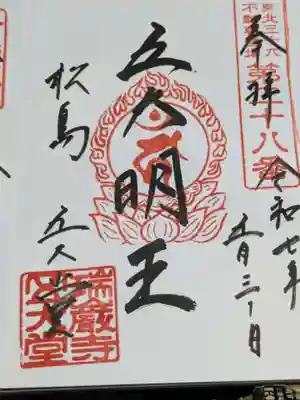 東北三十六
不動尊霊場
第二十八番
奉拝
令和七年
五月三十日
五大明王
松島
五大堂
瑞巌寺
五大堂